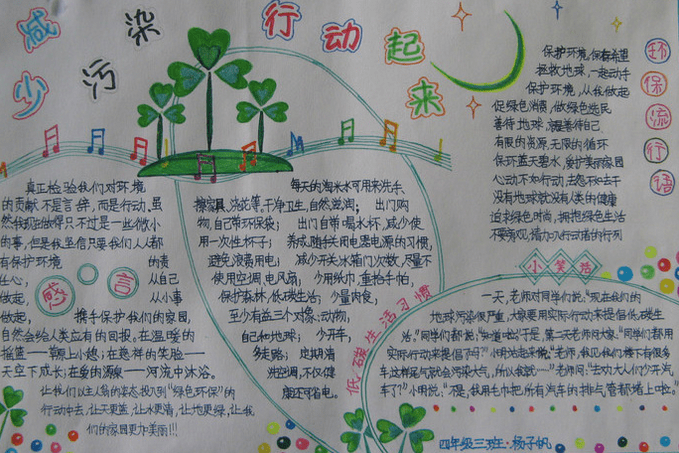 减少污染 行动起来
环保流行语
保护环境,保存希望
拯救地球,一起动手
保护环境,从我做起
促绿色消费,做绿色选民
善待地球,就是善待自己
有限的资源,无限的循环
保环蓝天碧水,爱护美丽家园
心动不如行动,去怨不如去干
没有地球就没有人类的健康
追求绿色时尚,拥抱绿色生活
不要旁观,请加入行动者的行列
真正检验我们对环境
的贡献不是言辞,而是行动,虽
然我现在做得只不过是一些微小
的事,但是我坚信只要我们人人都
有保护环境的责
任心,从自己
做起,从小事
做起,携手保护我们的家园,
自然会给人类应有的回报。在温暖的
摇篮——草原上小憩;在慈祥的笑脸——
天空下成长;在爱的源泉——河流中沐浴。
让我们以主人翁的姿态投入到“绿色环保”的
行动中去,让天更蓝,让水更清,让地更绿,让我
们的家园更加美丽!!!
感言
每天的淘米水可用来洗手、
擦家具、浇花等。干净卫生,自然滋润;出门购
物,自己带环保袋;出门自带喝水杯,减少使
用一次性杯子;养成随手关用电器电源的习惯,
避免浪费用电;减少开关冰箱门次数,尽量不
使用空调、电风扇;少用纸巾,重拾手帕,
保护森林,低碳生活;少量肉食,
至少有益三个对象:动物,
自己和地球;少开车,
多走路;定期清
洗空调,不仅健
康还可省电。
低碳生活习惯
小笑话
一天,老师对同学们说:“现在我们的
地球污染很严重,大家要用实际行动来提倡低碳生
活。”同学们都说:“知道啦!”于是,第二天老师问大家:“同学们都用
实际行动来提倡了吗?”小明站起来说:“老师,我见我们楼下有很多
车,这样尾气就会污染大气,所以我就……”老师问:“让功大人们少开汽
车了?”小明说:“不是,我用毛巾把所有汽车的排气管都堵上啦。”
四年级三班·杨子帆